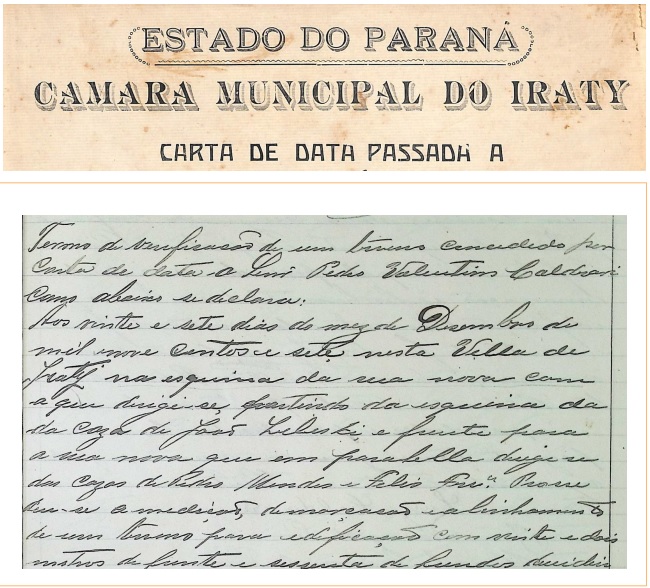 ESTADO DO PARANÁ
CAMARA MUNICIPAL DO IRATY
CARTA DE DATA PASSADA A
Termo de verificação de um terreno concedido por
Carta de data a Snr Pedro Valentim
como abaixo se declara:
Aos vinte e sete dias do mez de Desembro de
mil nove centos e sete nesta Villa de
Iraty na esquina da rua nova com
a que dirigi-se partindo da esquina da
da caza de João e frente para
a rua nova que em paralella dirige-se
das cazas de Pedro Mendes e Felis
deu-se a medição, demarcação e alinhamento
de um terreno para edificação com vinte e dois
metros de frente e sessenta de fundos